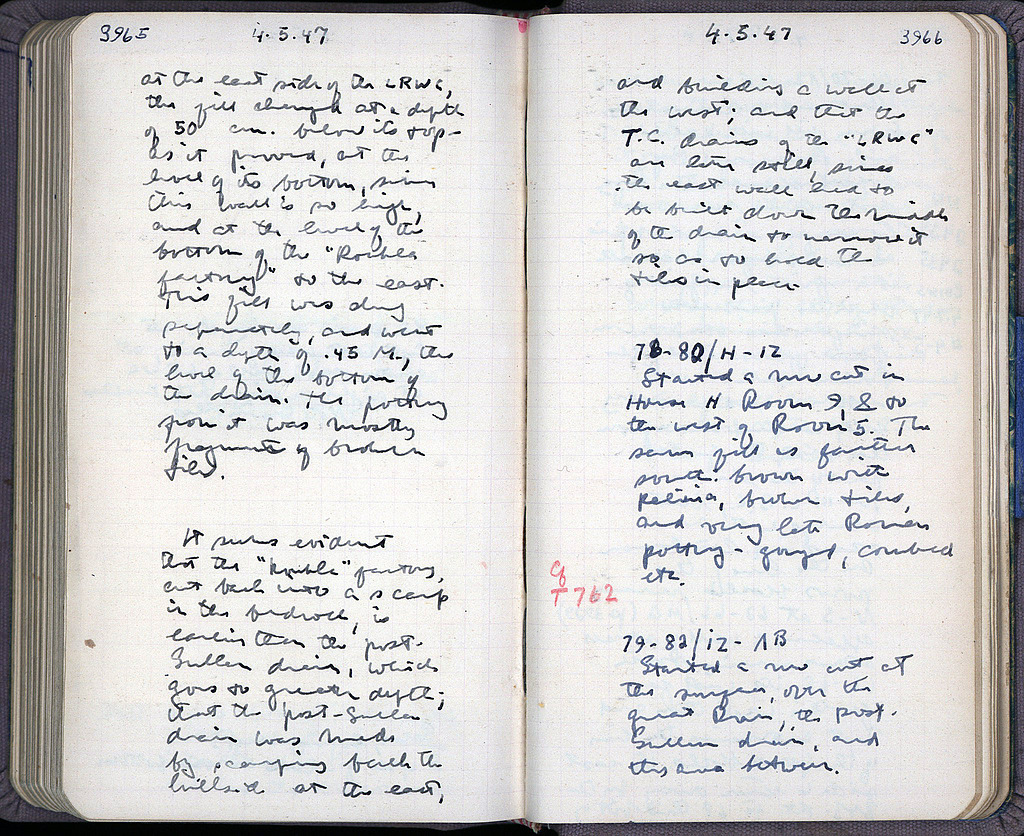 3965 4.5.47
at the east side of the LRWC,
the fill changed at a depth
of 50 cm. below its top -
as it proved, at the
level of its bottom, since
this wall is so high,
and at the level of the
bottom of the "Roubla
factory" to the east.
This fill was dug
separately, and went
to a depth of .45 M., the
level of the bottom of
the drain. The pottery
from it was mostly
fragments of broken
tiles.
It seems evident
that the "Roubla" factory,
cut back into a scarp
in the bedrock, is
earlier than the post-
Sullan drain, which
goes to greater depth;
that the post-Sullan
drain was made
by scarping back the
hillside at the east,
4.5.47 3966
and building a wall at
the west; and that the
T.C. drains of the "LRWC"
are later still, since
the east wall had to
be built down the middle
of the drain to narrow it
so as to hold the
tiles in place.
78-80/H-IZ
Started a new cut in
House H Room 9, 8 to
the west of Room 5. The
same fill as farther
south: brown with
patina, broken tiles,
and very late Roman
pottery - gouged, combed
etc.
Cf
T 762
79-82/IZ-ΛB
Started a new cut at
the surface, over the
great Drain, the post-
Sullan drain, and
the area between.